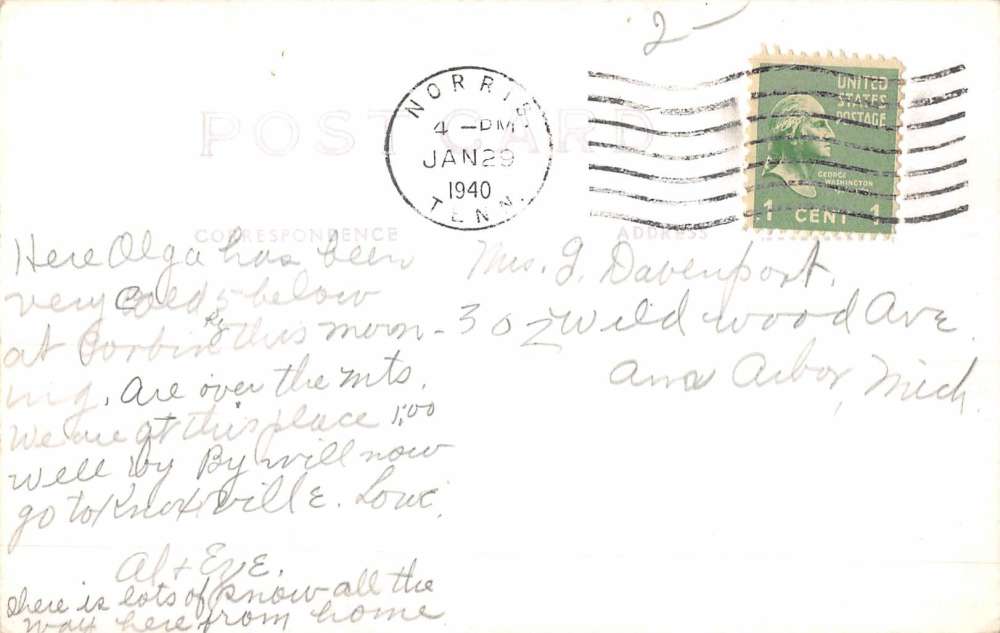 2-
NORRIS
4 -PM
JAN 29
1940
TENN.
UNITED
STATES
POSTAGE
GEORGE
WASHINGTON
1 CENT 1
POST CARD
CORRESPONDENCE
ADDRESS
Here Olga has been
very cold 5 below
at Corbin Ky this morn-
ing. Are over the Mts.
We are at this place 1,00
well by By will now
go to Knoxville. Love.
Al + Eve.
there is lots of snow all the
way here from home
Mrs. G. Davenport.
302 Wildwood Ave
Ann Arbor, Mich.